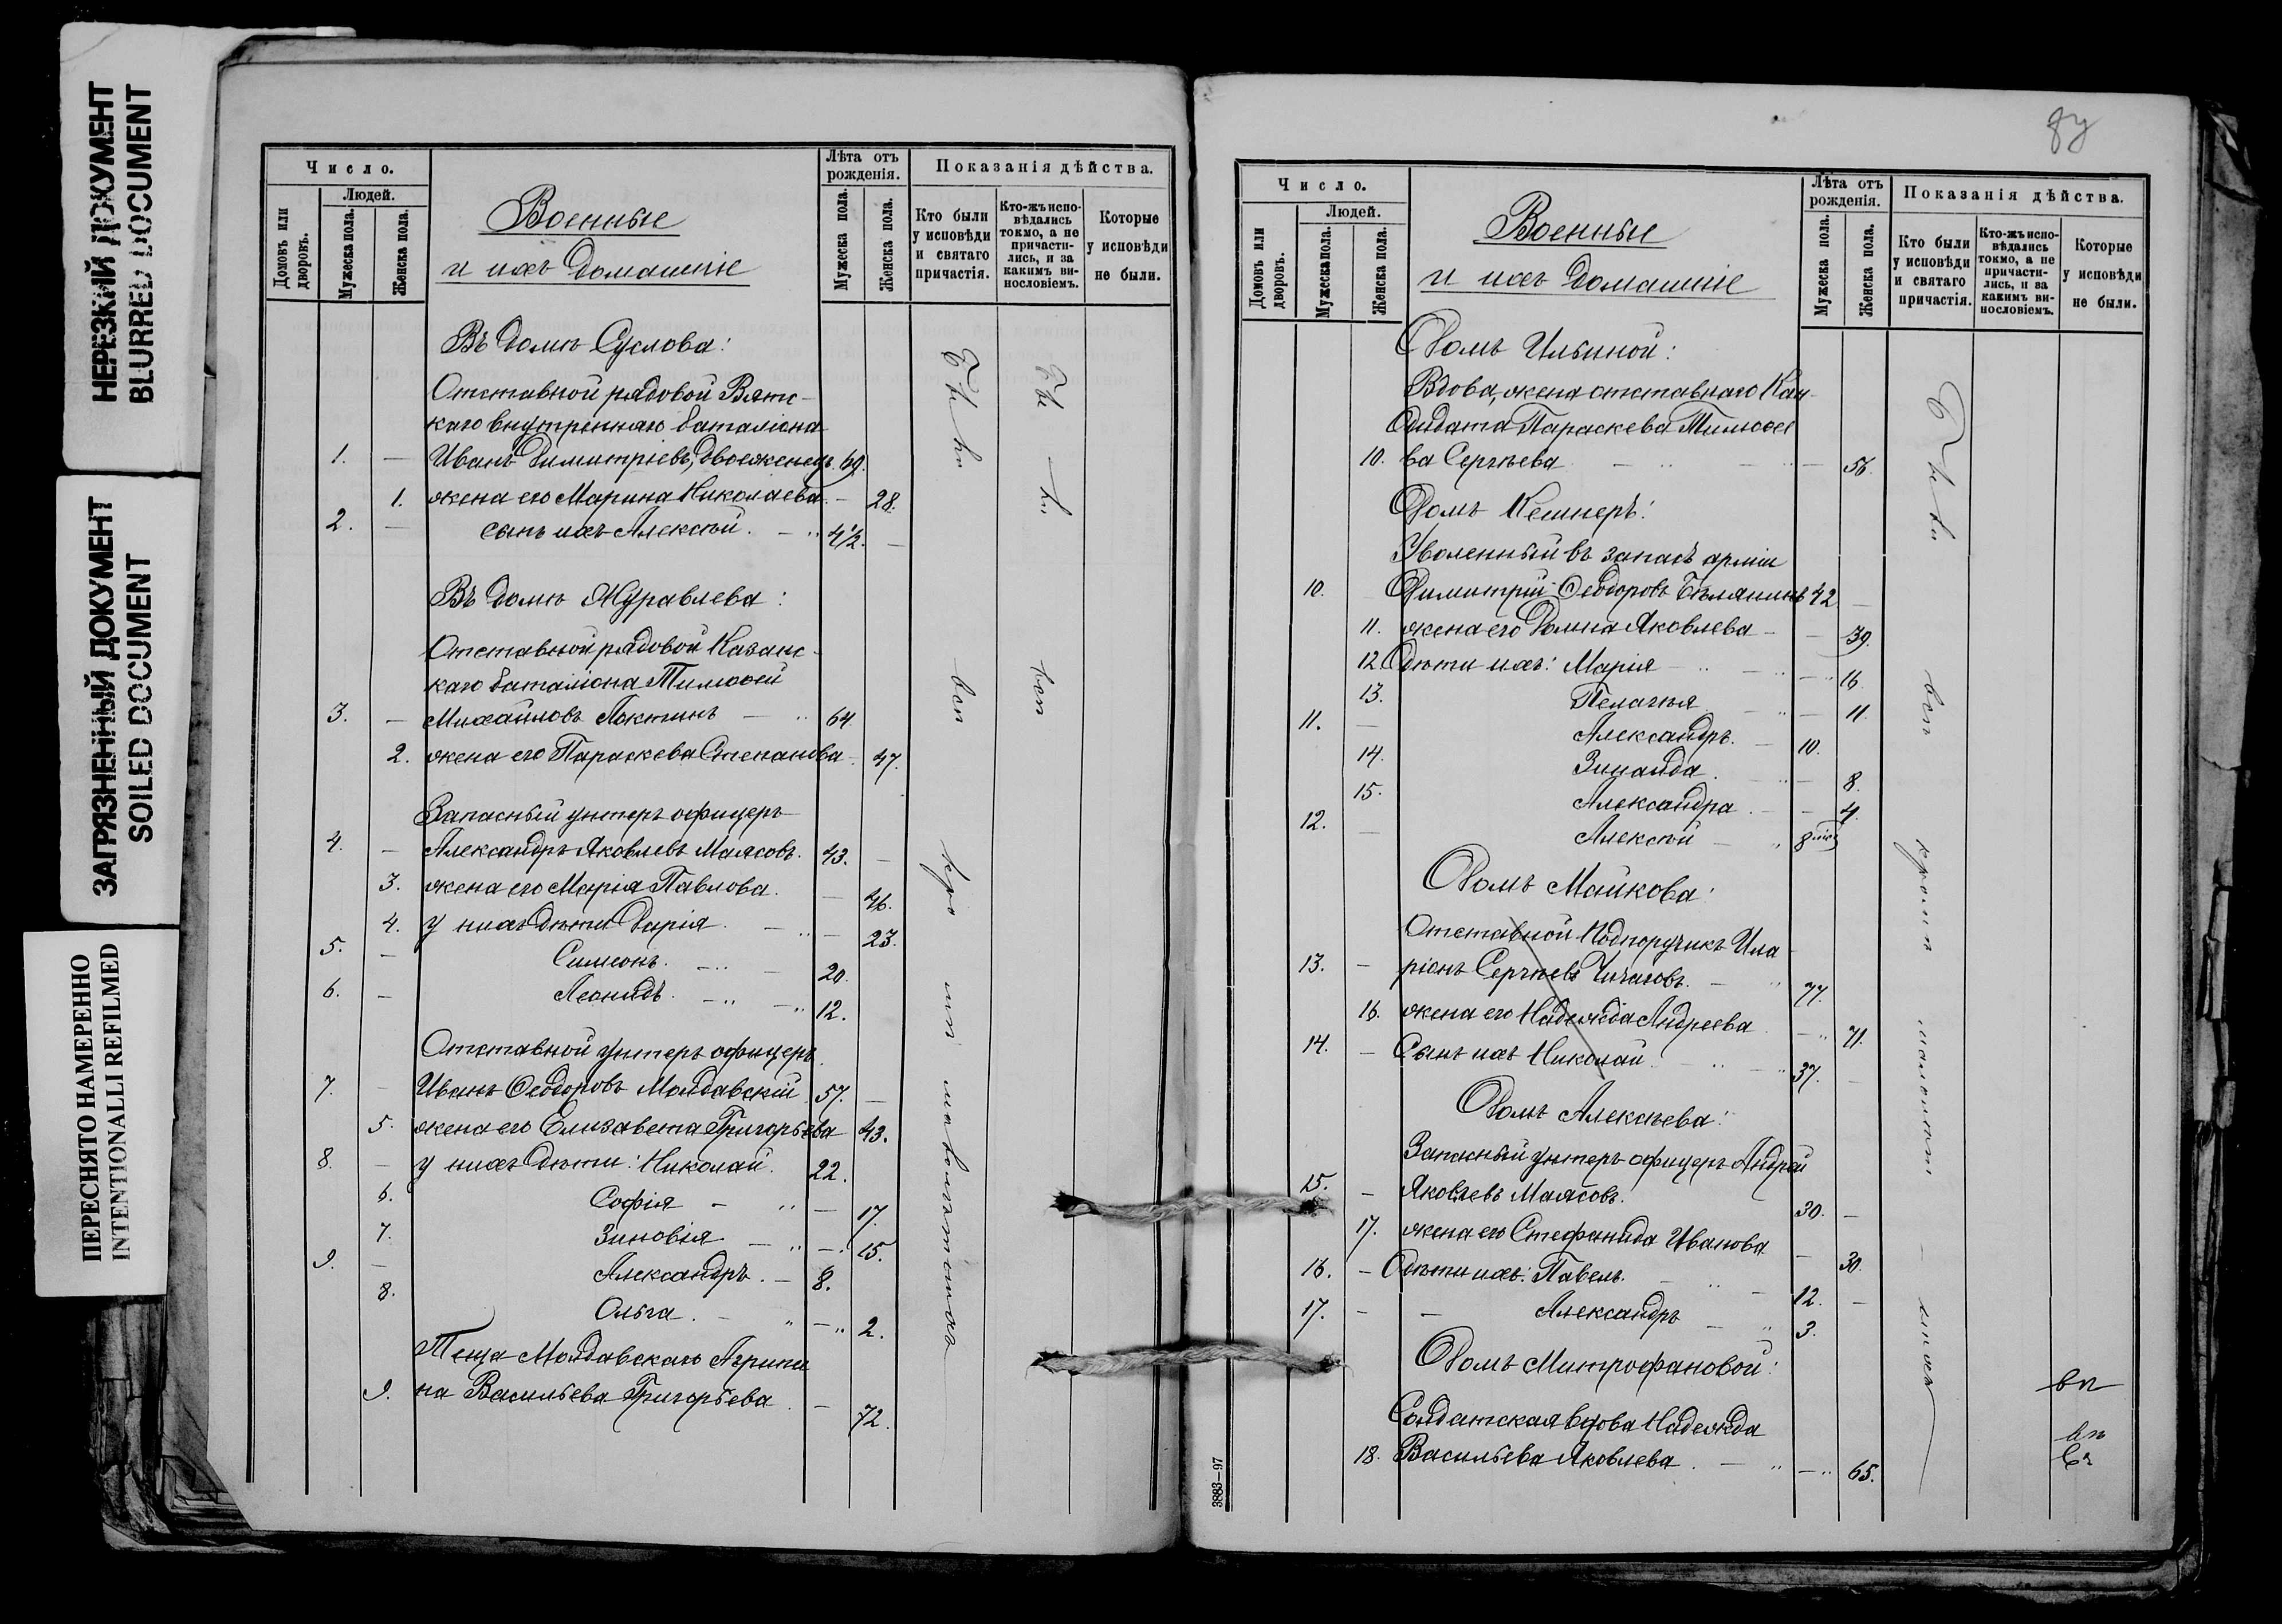 НЕРЕЗКИЙ ДОКУМЕНТ
BLURRED DOCUMENT
ЗАГРЯЗНЕННЫЙ ДОКУМЕНТ
SOILED DOCUMENT
ПЕРЕСНЯТО НАМЕРЕННО
INTENTIONALLI REFILMED
Число.
Людей.
Домовъ или дворовъ.
Мужеска пола.
Женска пола.
Военные
и ихъ домашніе
Лѣта отъ рожденія.
Мужеска пола.
Женска пола.
Показанія дѣйства.
Кто были у исповѣди и святаго причастія.
Кто-жъ испо-вѣдались токмо, а не причасти-лись, и за какимъ ви-нословіемъ.
Которые у исповѣди не были.
Въ домѣ Суслова:
Отставной рядовой Вятс-
каго внутренняго баталіона
1. — Иванъ Димитріевъ, двоеженецъ. 69.
1. жена его Марина Николаева — 28.
2. — сынъ ихъ Алексѣй. — 4½. —
Въ домѣ Журавлева:
Отставной рядовой Казанс-
каго баталіона Тимоѳей
3. — Михайловъ Локтинъ — 64
2. жена его Параскева Степанова — 47.
Запасный унтеръ офицеръ
4. — Александръ Яковлевъ Маясовъ. 43. —
3. жена его Марія Павлова. — 46.
4. у нихъ дѣти Дарія. — 23.
5. — Симеонъ. — 20.
6. — Леонидъ. — 12.
Отставной унтеръ офицеръ
7. Иванъ Ѳеодоровъ Молдавскій 57. —
5. жена его Елизавета Григорьева 43.
8. — у нихъ дѣти: Николай. 22.
6. Софія — 17.
7. Зиновія — 15.
9. — Александръ. — 8.
8. Ольга. — 2.
Теща Молдавскаго Агрипи
9. на Васильева Григорьева — 72.
вси
вси
84
Число.
Людей.
Домовъ или дворовъ.
Мужеска пола.
Женска пола.
Военные
и ихъ домашніе
Лѣта отъ рожденія.
Мужеска пола.
Женска пола.
Показанія дѣйства.
Кто были у исповѣди и святаго причастія.
Кто-жъ испо-вѣдались токмо, а не причасти-лись, и за какимъ ви-нословіемъ.
Которые у исповѣди не были.
Домъ Ильиной:
Вдова, жена отставнаго Кан-
дидата Параскева Тимоѳе
10. ва Сергѣева — 56.
Домъ Кешнеръ:
Уволенный въ запасъ арміи
10. Димитрій Ѳеодоровъ Бѣлянинъ 42 —
11. жена его Домна Яковлева — 39.
12. Дѣти ихъ: Марія — 16.
13. Пелагія — 11.
11. — Александръ. — 10.
14. Зинаида. — 8.
15. Александра. — 4.
12. — Алексѣй — 8 мѣс
Домъ Майкова:
Отставной Подпоручикъ Ила-
13. — ріонъ Сергѣевъ Чичаговъ. — 77.
16. жена его Надежда Андреева — 71.
14. — Сынъ ихъ Николай. — 37. —
Домъ Алексѣева:
Запасный унтеръ-офицеръ Андрей
15. — Яковлевъ Маясовъ. 30. —
17. жена его Стефанида Иванова — 30.
16. — Дѣти ихъ: Павелъ. — 12. —
17. — — Александръ — 3.
Домъ Митрофановой:
Солдатская вдова Надежда
18. Васильева Яковлева. — 65.
вси кромѣ
вп
3883—97